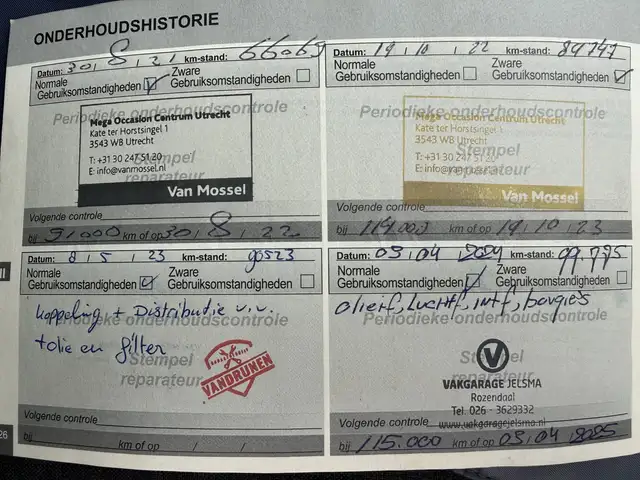 ONDERHOUDSHISTORIE
Datum: 30, 8, 21 km-stand: 66069
Normale Gebruiksomstandigheden
Zware Gebruiksomstandigheden
Periodieke onderhoudscontrole
Mega Occasion Centrum Utrecht
Kate ter Horstsingel 1
3543 WB Utrecht
T: +31 30 247 51 20
E: info@vanmossel.nl
Stempel
reparateur
Van Mossel
Volgende controle
bij 91.000 km of op 30, 8, 22
Datum: 19, 10, 22 km-stand: 84747
Normale Gebruiksomstandigheden
Zware Gebruiksomstandigheden
Periodieke onderhoudscontrole
Mega Occasion Centrum Utrecht
Kate ter Horstsingel 1
3543 WB Utrecht
T: +31 30 247 51 20
E: info@vanmossel.nl
Stempel
reparateur
Van Mossel
Volgende controle
bij 114.000 km of op 19, 10, 23
Datum: 8, 5, 23 km-stand: 90523
Normale Gebruiksomstandigheden
Zware Gebruiksomstandigheden
Koppeling + Distributie v.v.
Periodieke onderhoudscontrole
+olie en filter
Stempel
reparateur
VANDRUNEN
Volgende controle
bij km of op / /
Datum: 03, 04, 2024 km-stand: 99.775
Normale Gebruiksomstandigheden
Zware Gebruiksomstandigheden
olieif, luchtf, intf, bougie's
Periodieke onderhoudscontrole
Stempel
reparateur
VAKGARAGE JELSMA
Rozendaal
Tel. 026 - 3629332
www.vakgaragejelsma.nl
Volgende controle
bij 115.000 km of op 03, 04, 2025
26